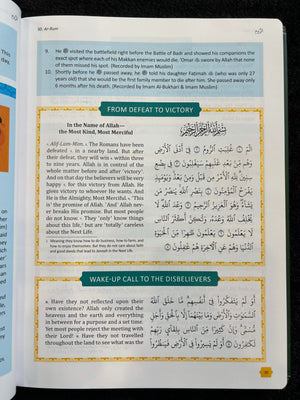 30. Ar-Rum
9. He ﷺ visited the battlefield right before the Battle of Badr and showed his companions the
exact spot where each of the Makkan enemies would die. 'Omar ؓ swore by Allah that none
of them missed his spot. (Recorded by Imam Muslim)
10. Shortly before he ﷺ passed away, he ﷺ told his daughter Fatimah ؓ (who was only 27
years old) that she would be the first family member to die after him. She passed away only
6 months after his death. (Recorded by Imam Al-Bukhari & Imam Muslim)
FROM DEFEAT TO VICTORY
In the Name of Allah—
the Most Kind, Most Merciful
بِسْمِ اللَّهِ الرَّحْمَٰنِ الرَّحِيمِ
Alif-Lam-Mim. The Romans have been
defeated in a nearby land. But after
their defeat, they will win within three
to nine years. Allah is in control of the
whole matter before and after 'victory'.
And on that day the believers will be very
happy for this victory from Allah. He
gives victory to whoever He wants. And
He is the Almighty, Most Merciful. 'This
is' the promise of Allah. 'And' Allah 'never
breaks His promise. But most people
do not know. 'They 'only' know things
about this life,¹ but are 'totally' careless
about the Next Life.
الٓمٓ ۝ غُلِبَتِ الرُّومُ ۝ فِىٓ أَدْنَى الْأَرْضِ
وَهُم مِّنۢ بَعْدِ غَلَبِهِمْ سَيَغْلِبُونَ ۝ فِى بِضْعِ
سِنِينَ ۗ لِلَّهِ الْأَمْرُ مِن قَبْلُ وَمِنۢ بَعْدُ ۚ وَيَوْمَئِذٍ
يَفْرَحُ الْمُؤْمِنُونَ ۝ بِنَصْرِ اللَّهِ ۚ يَنصُرُ مَن
يَشَآءُ ۖ وَهُوَ الْعَزِيزُ الرَّحِيمُ ۝ وَعْدَ اللَّهِ ۖ لَا
يُخْلِفُ اللَّهُ وَعْدَهُۥ وَلَٰكِنَّ أَكْثَرَ النَّاسِ
لَا يَعْلَمُونَ ۝ يَعْلَمُونَ ظَٰهِرًا مِّنَ الْحَيَوٰةِ
الدُّنْيَا وَهُمْ عَنِ الْءَاخِرَةِ هُمْ غَٰفِلُونَ ۝
1 Meaning they know how to do business, how to farm, and
how to enjoy themselves. But they do not care about faith
and good deeds that lead to Jannah in the Next Life.
WAKE-UP CALL TO THE DISBELIEVERS
Have they not reflected upon their
own existence? Allah only created the
heavens and the earth and everything
in between for a purpose and a set time.
Yet most people reject the meeting with
their Lord! Have they not travelled
throughout the land to see what was the
أَوَلَمْ يَتَفَكَّرُوا۟ فِىٓ أَنفُسِهِم ۗ مَّا خَلَقَ اللَّهُ
السَّمَٰوَٰتِ وَالْأَرْضَ وَمَا بَيْنَهُمَآ إِلَّا بِالْحَقِّ وَأَجَلٍ
مُّسَمًّى ۗ وَإِنَّ كَثِيرًا مِّنَ النَّاسِ بِلِقَآئِ رَبِّهِمْ
لَكَٰفِرُونَ ۝ أَوَلَمْ يَسِيرُوا۟ فِى الْأَرْضِ فَيَنظُرُوا۟